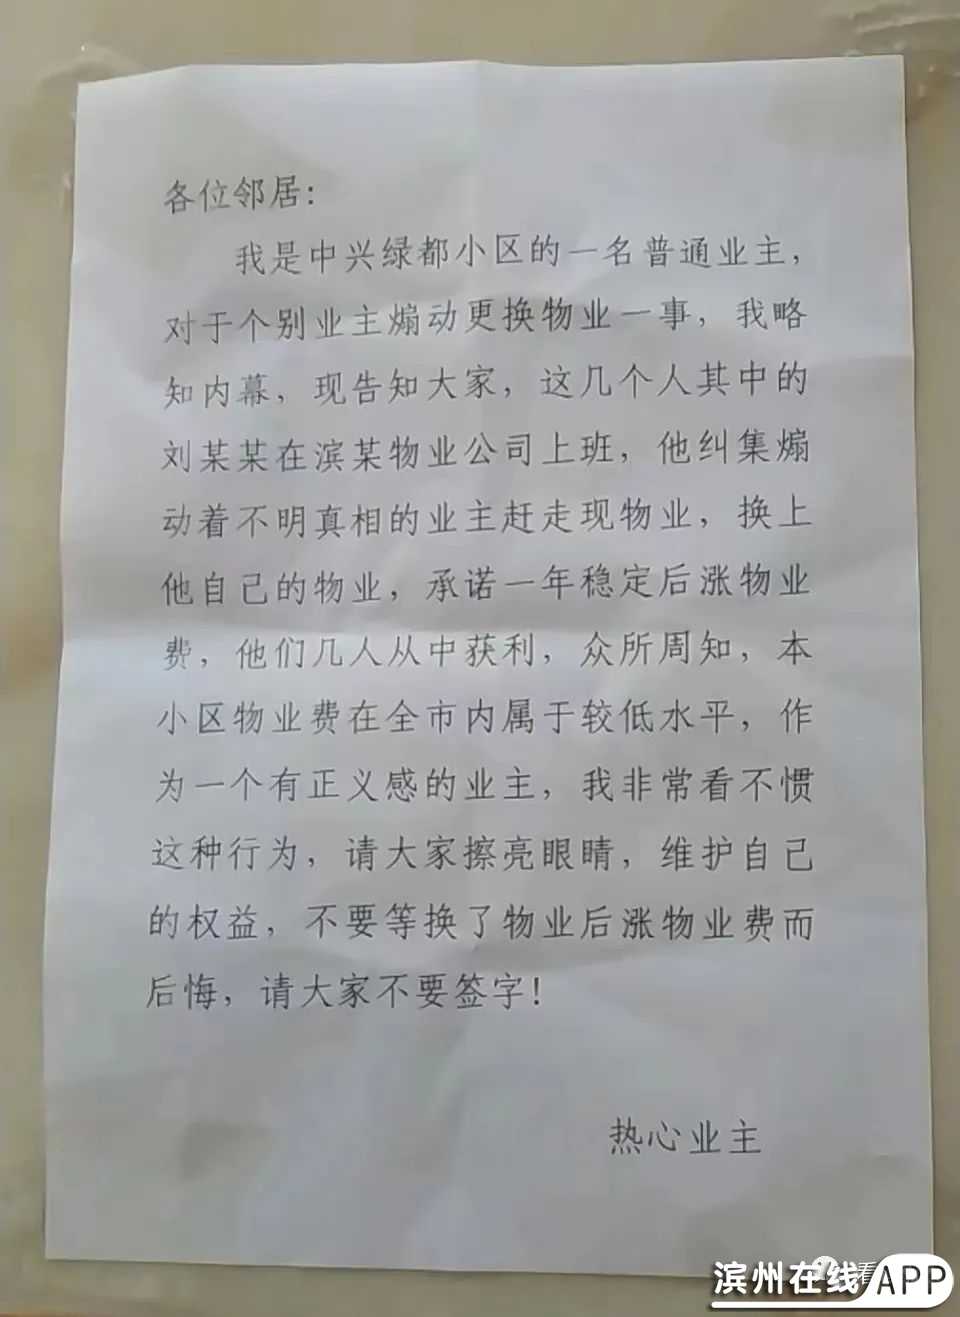 各位邻居：
我是中兴绿都小区的一名普通业主，
对于个别业主煽动更换物业一事，我略
知内幕，现告知大家，这几个人其中的
刘某某在滨某物业公司上班，他纠集煽
动着不明真相的业主赶走现物业，换上
他自己的物业，承诺一年稳定后涨物业
费，他们几人从中获利，众所周知，本
小区物业费在全市内属于较低水平，作
为一个有正义感的业主，我非常看不惯
这种行为，请大家擦亮眼睛，维护自己
的权益，不要等换了物业后涨物业费而
后悔，请大家不要签字！
热心业主
滨州在线APP